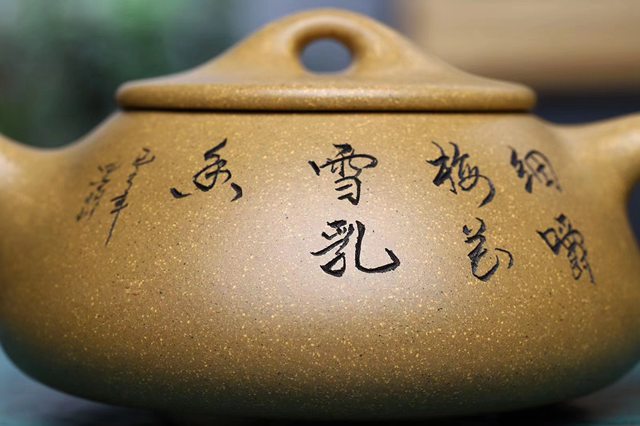 細嚼
梅花
雪乳
香